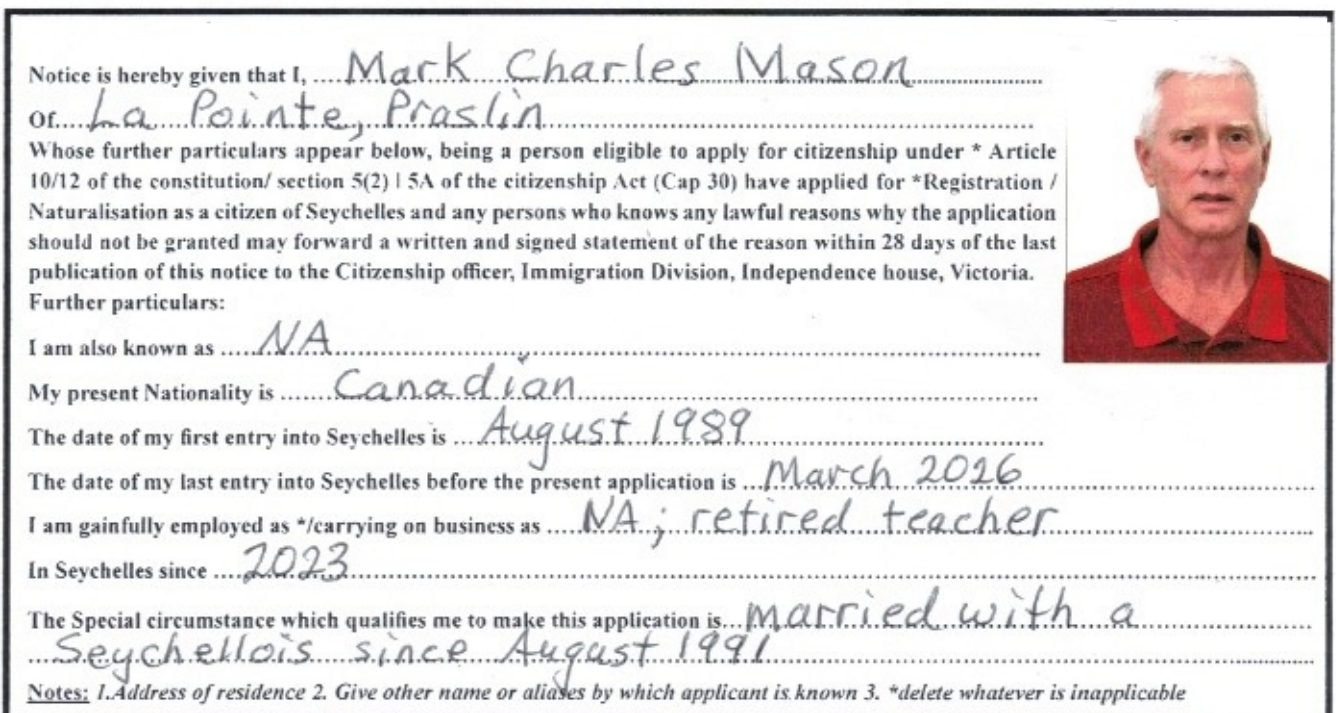 Notice is hereby given that I, .... Mark Charles Mason ....
Of..... La Pointe, Praslin ....
Whose further particulars appear below, being a person eligible to apply for citizenship under * Article
10/12 of the constitution/ section 5(2) | 5A of the citizenship Act (Cap 30) have applied for *Registration /
Naturalisation as a citizen of Seychelles and any persons who knows any lawful reasons why the application
should not be granted may forward a written and signed statement of the reason within 28 days of the last
publication of this notice to the Citizenship officer, Immigration Division, Independence house, Victoria.
Further particulars:
I am also known as ..... NA ....
My present Nationality is ....... Canadian ....
The date of my first entry into Seychelles is .... August 1989 ....
The date of my last entry into Seychelles before the present application is ... March 2026 ....
I am gainfully employed as */carrying on business as .... NA ; retired teacher
In Seychelles since .... 2023 ....
The Special circumstance which qualifies me to make this application is... married with a
.... Seychellois since August 1991 ....
Notes: 1.Address of residence 2. Give other name or aliases by which applicant is known 3. *delete whatever is inapplicable